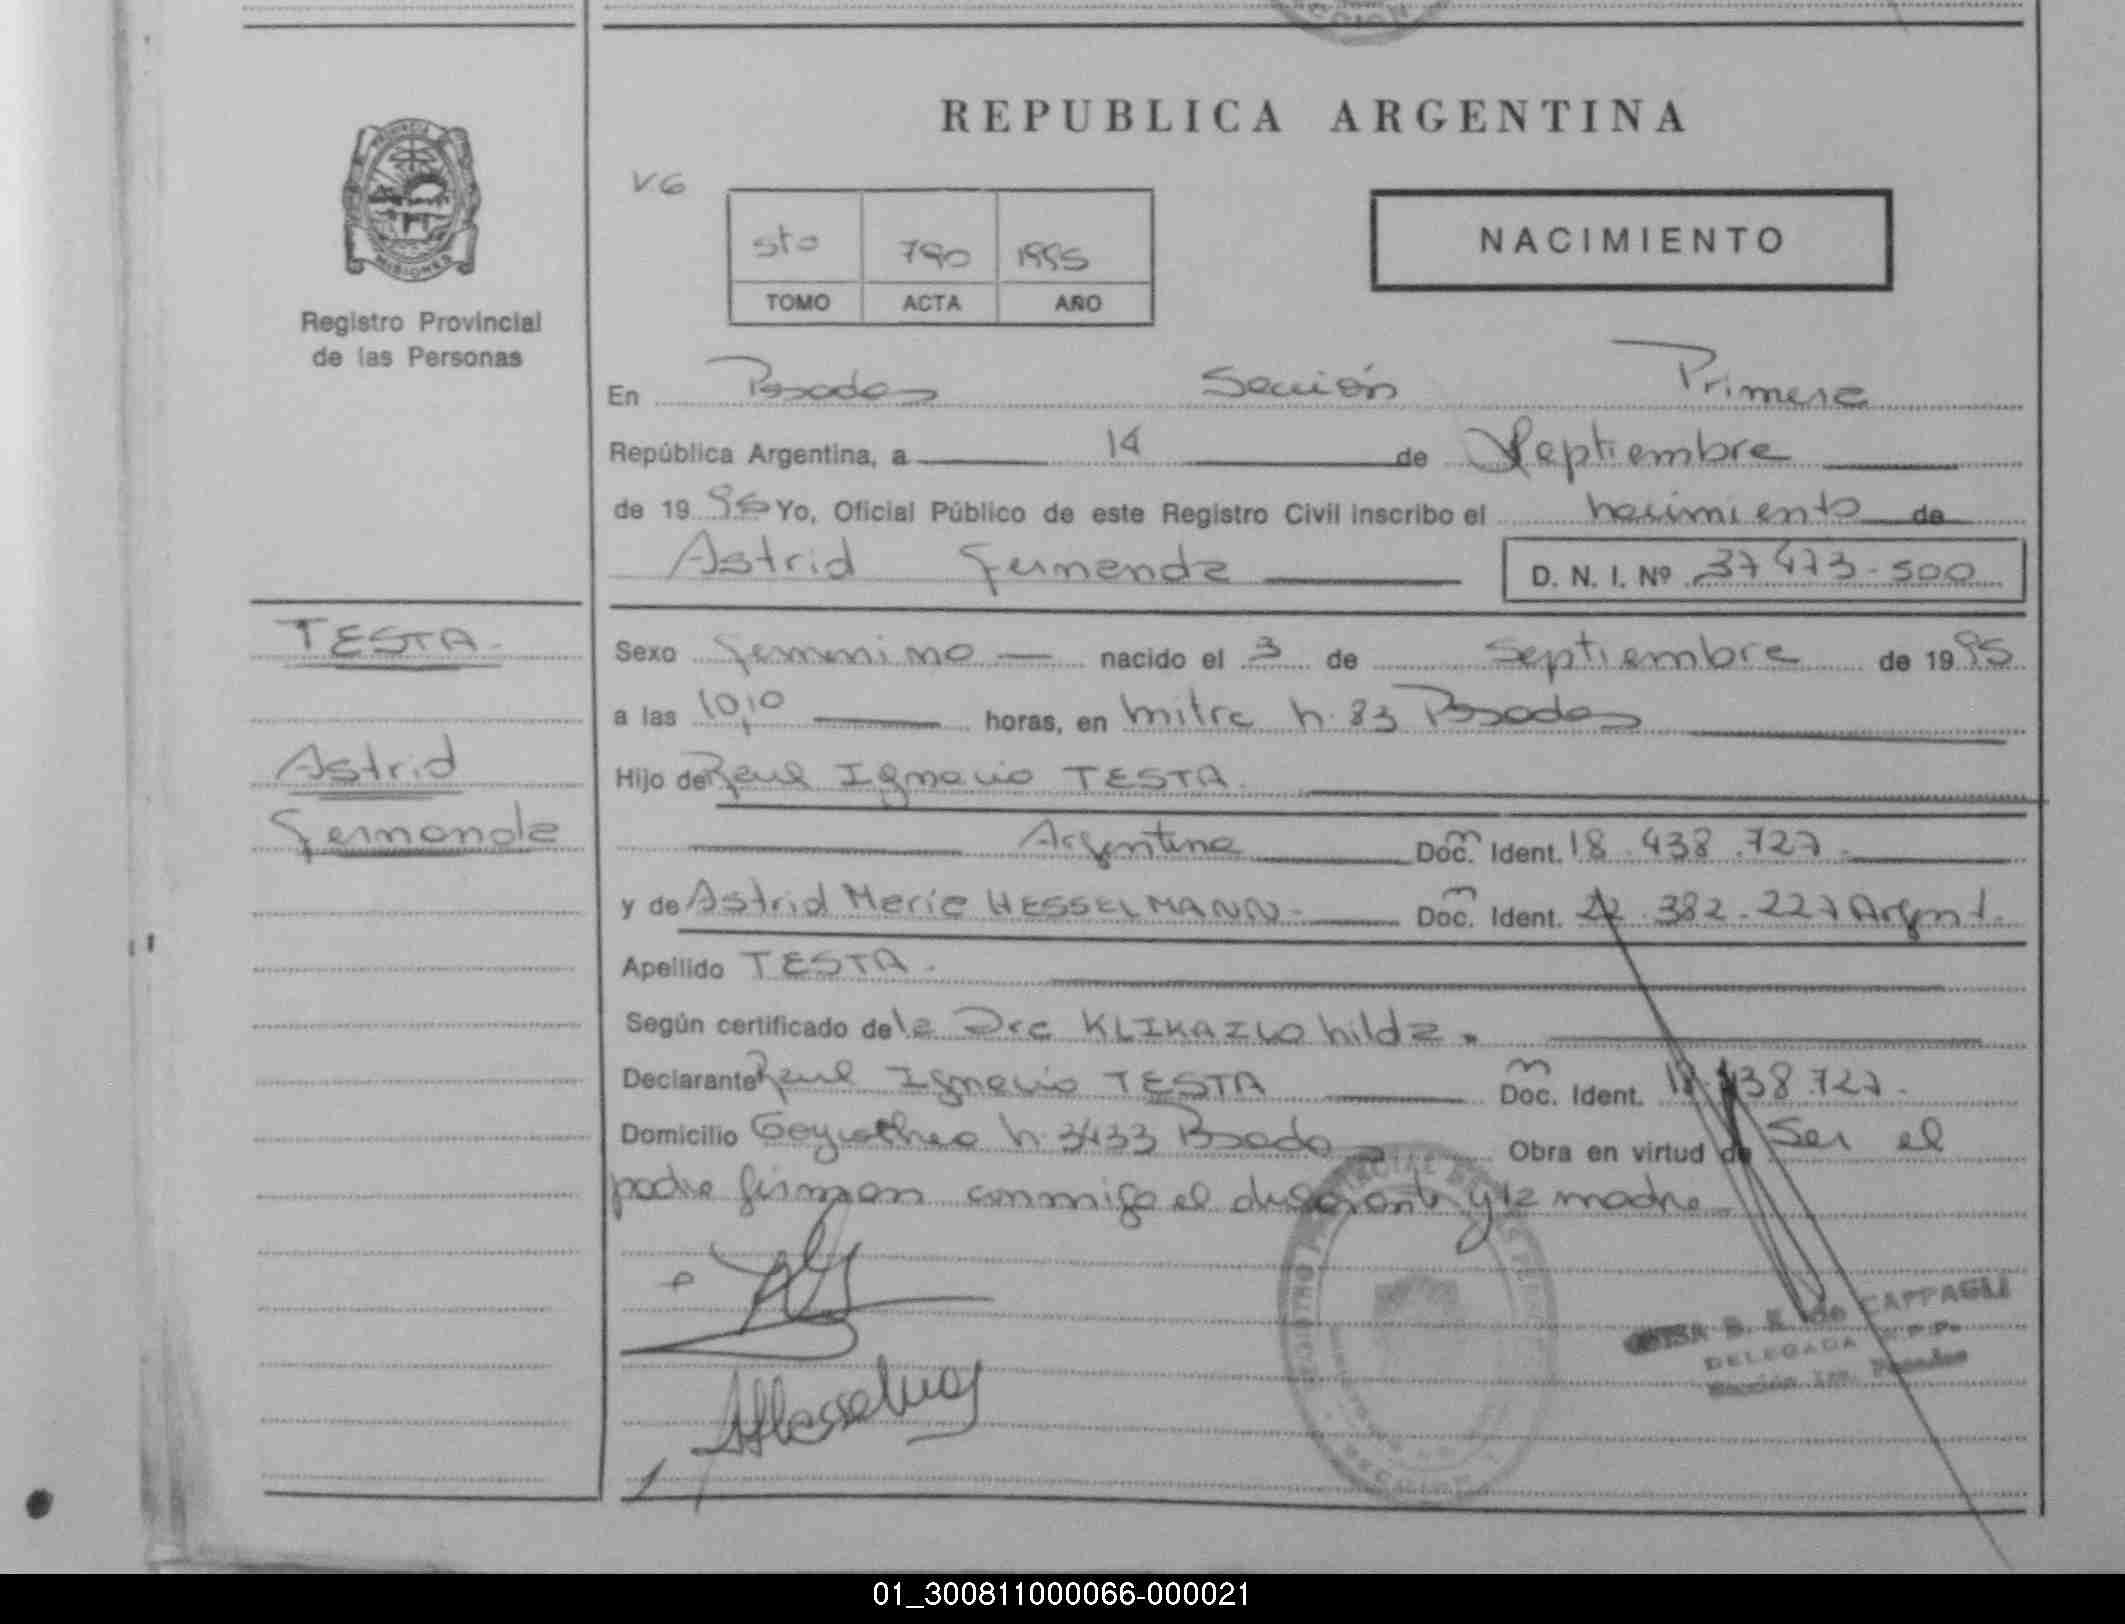 REPUBLICA ARGENTINA
V6
5to 790 1995
TOMO ACTA AÑO
NACIMIENTO
PROVINCIA
MISIONES
Registro Provincial
de las Personas
En Posadas Sección Primera
República Argentina, a 14 de Septiembre
de 1995 Yo, Oficial Público de este Registro Civil inscribo el nacimiento de
Astrid Fernanda D. N. I. Nº 37473-500
TESTA
Astrid
Fernanda
Sexo femenino nacido el 3 de Septiembre de 1995
a las 10,10 horas, en mitre n. 83 Posadas
Hijo de Raul Ignacio TESTA
Argentina Doc. Ident. 18.438.727
y de Astrid Maria HESSELMANN Doc. Ident. 22.382.227 Argent.
Apellido TESTA
Según certificado de la Dra KLIKAILO hilda.
Declarante Raul Ignacio TESTA Doc. Ident. 18.438.727.
Domicilio n. 3433 Posadas Obra en virtud de Ser el
padre firman conmigo el declarante y la madre
de CAPPAGLI
DELEGADA R.P.P.
Sección 1ra. Posadas
01_300811000066-000021